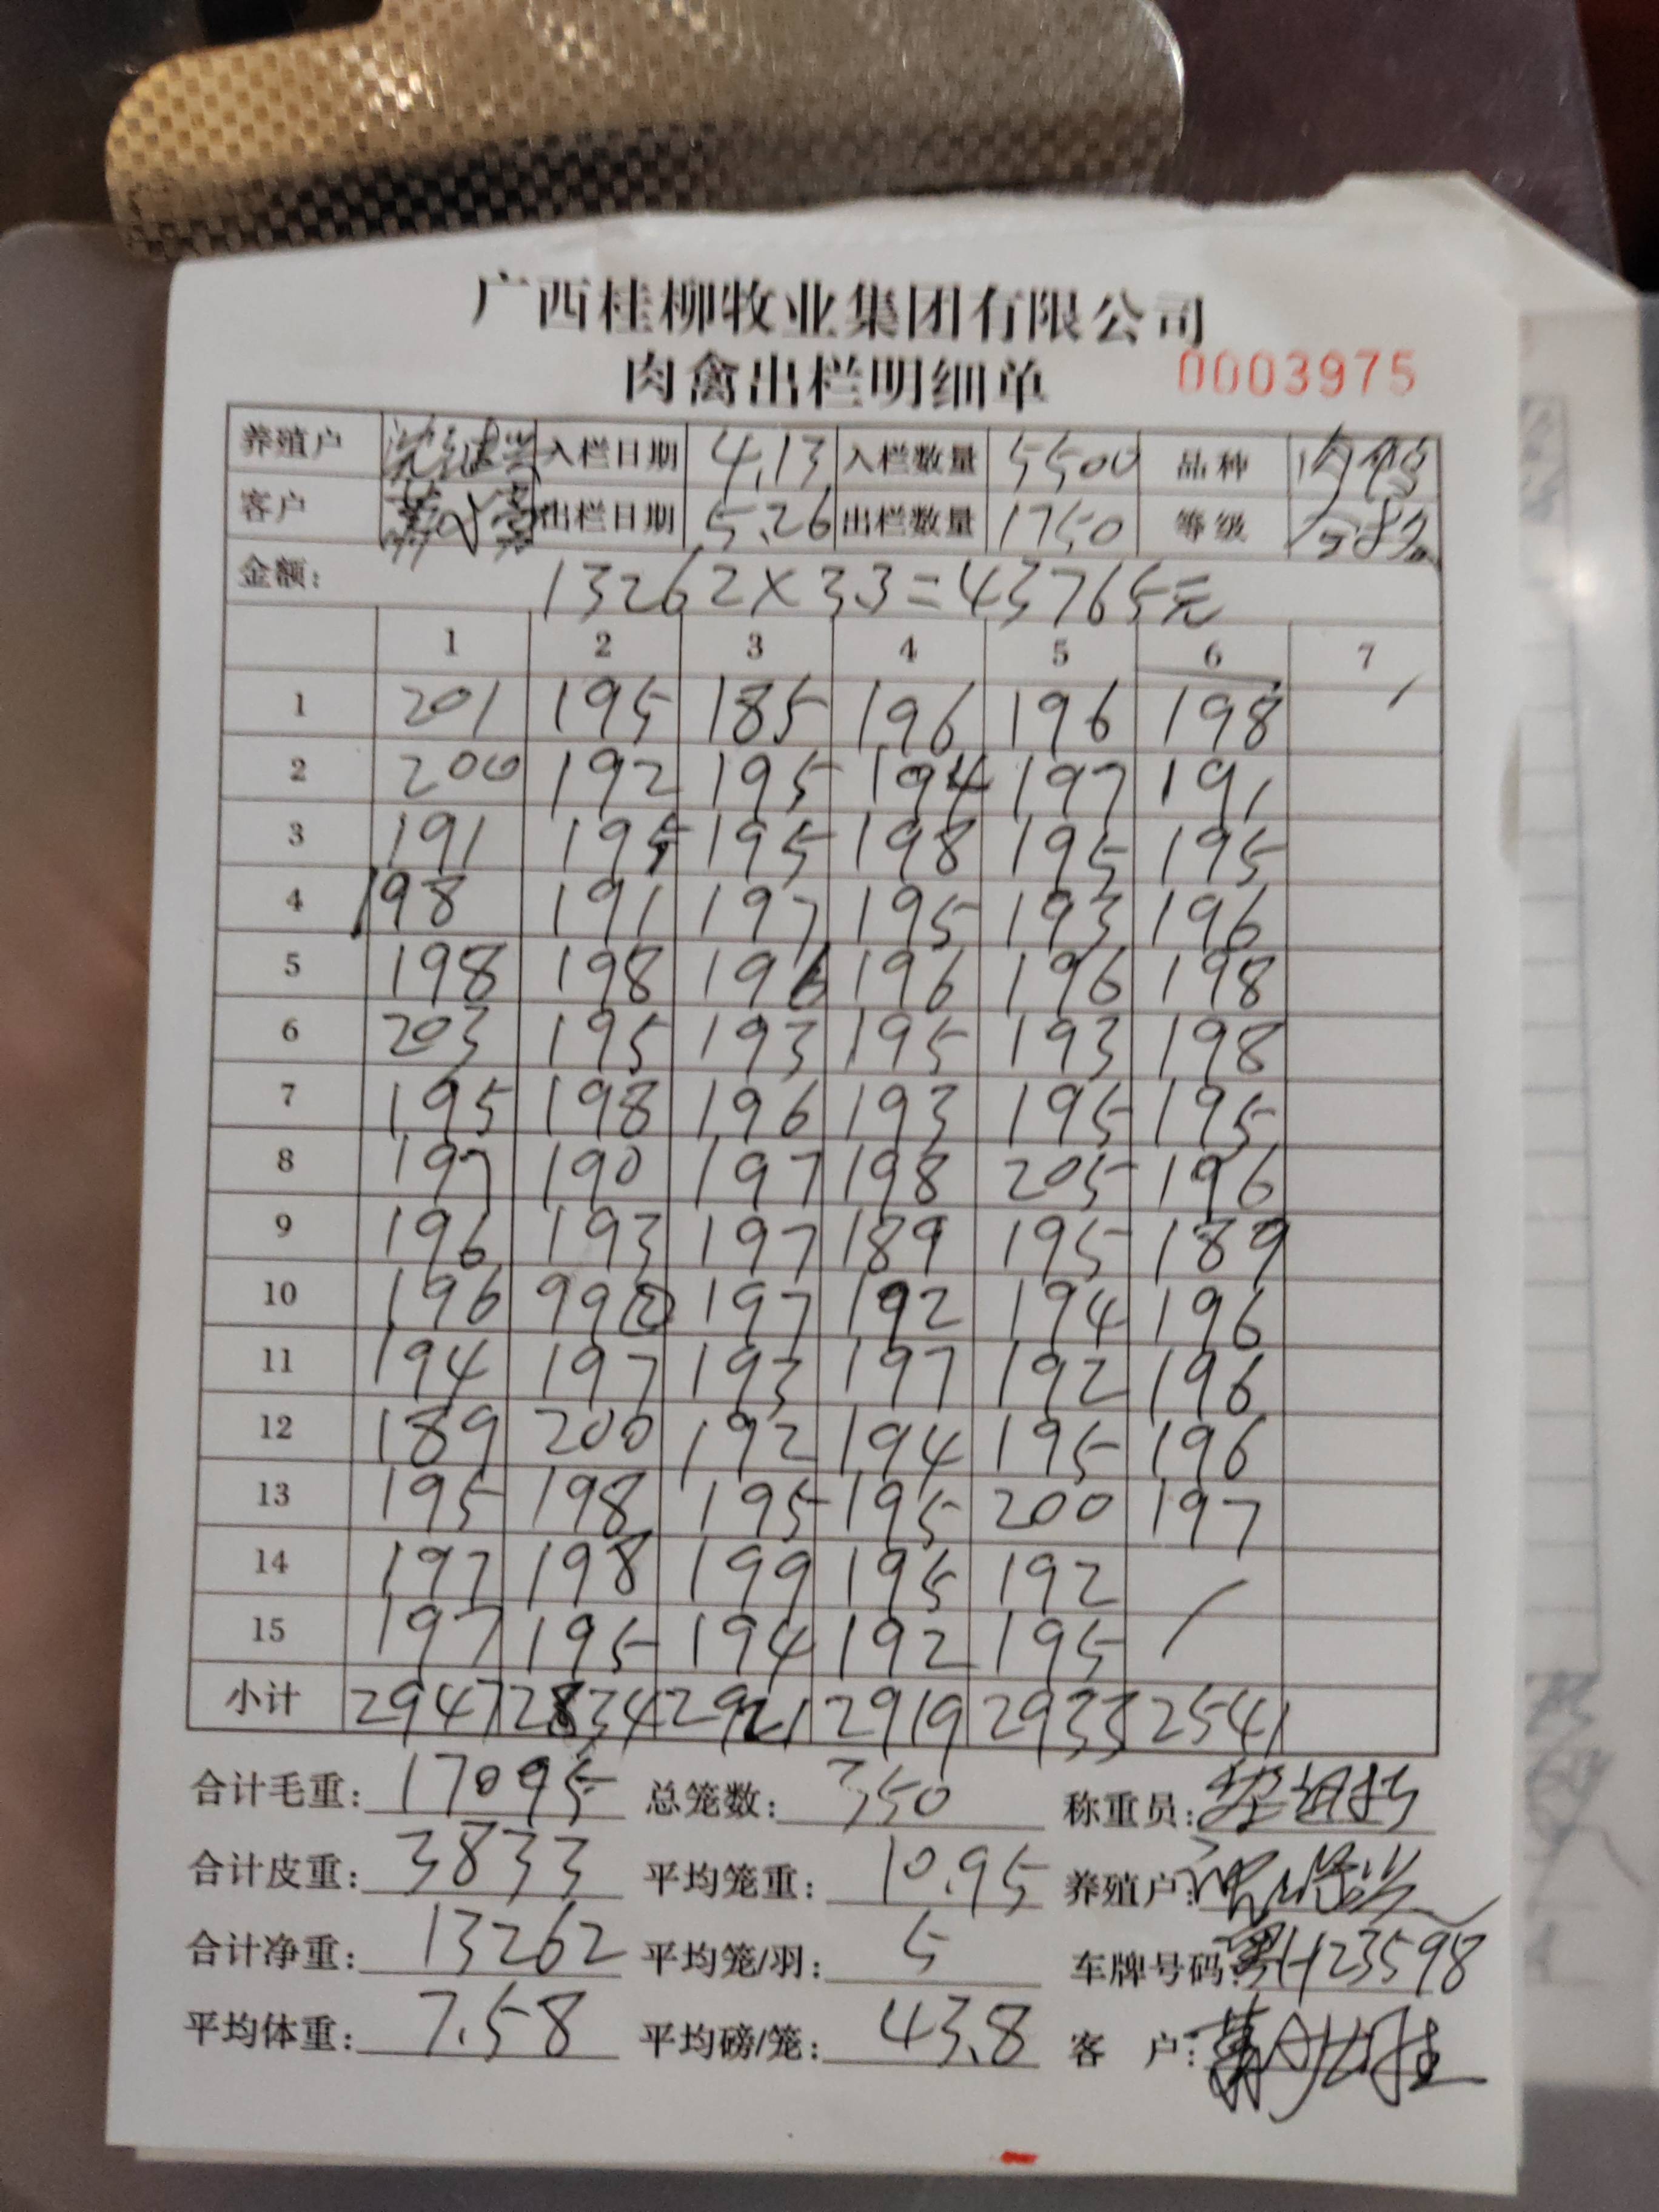 广西桂柳牧业集团有限公司
肉禽出栏明细单 0003975
养殖户 入栏日期 4.13 入栏数量 5500 品种 肉鸭
客户 出栏日期 5.26 出栏数量 1750 等级
金额: 13262×3.3=43765元
1 2 3 4 5 6 7
1 201 195 185 196 196 198
2 200 192 195 194 197 191
3 191 195 195 198 195 195
4 198 191 197 195 193 196
5 198 198 196 196 196 198
6 203 195 193 195 193 198
7 195 198 196 193 195 195
8 197 190 197 198 205 196
9 196 193 197 189 195 189
10 196 99② 197 192 194 196
11 194 197 193 197 192 196
12 189 200 192 194 195 196
13 195 198 195 195 200 197
14 197 198 199 195 192
15 197 195 194 192 195
小计 2947 2834 2921 2919 2933 2541
合计毛重: 17095 总笼数: 350 称重员:
合计皮重: 3833 平均笼重: 10.95 养殖户:
合计净重: 13262 平均笼/羽: 5 车牌号码: 粤H23598
平均体重: 7.58 平均磅/笼: 43.8 客户: